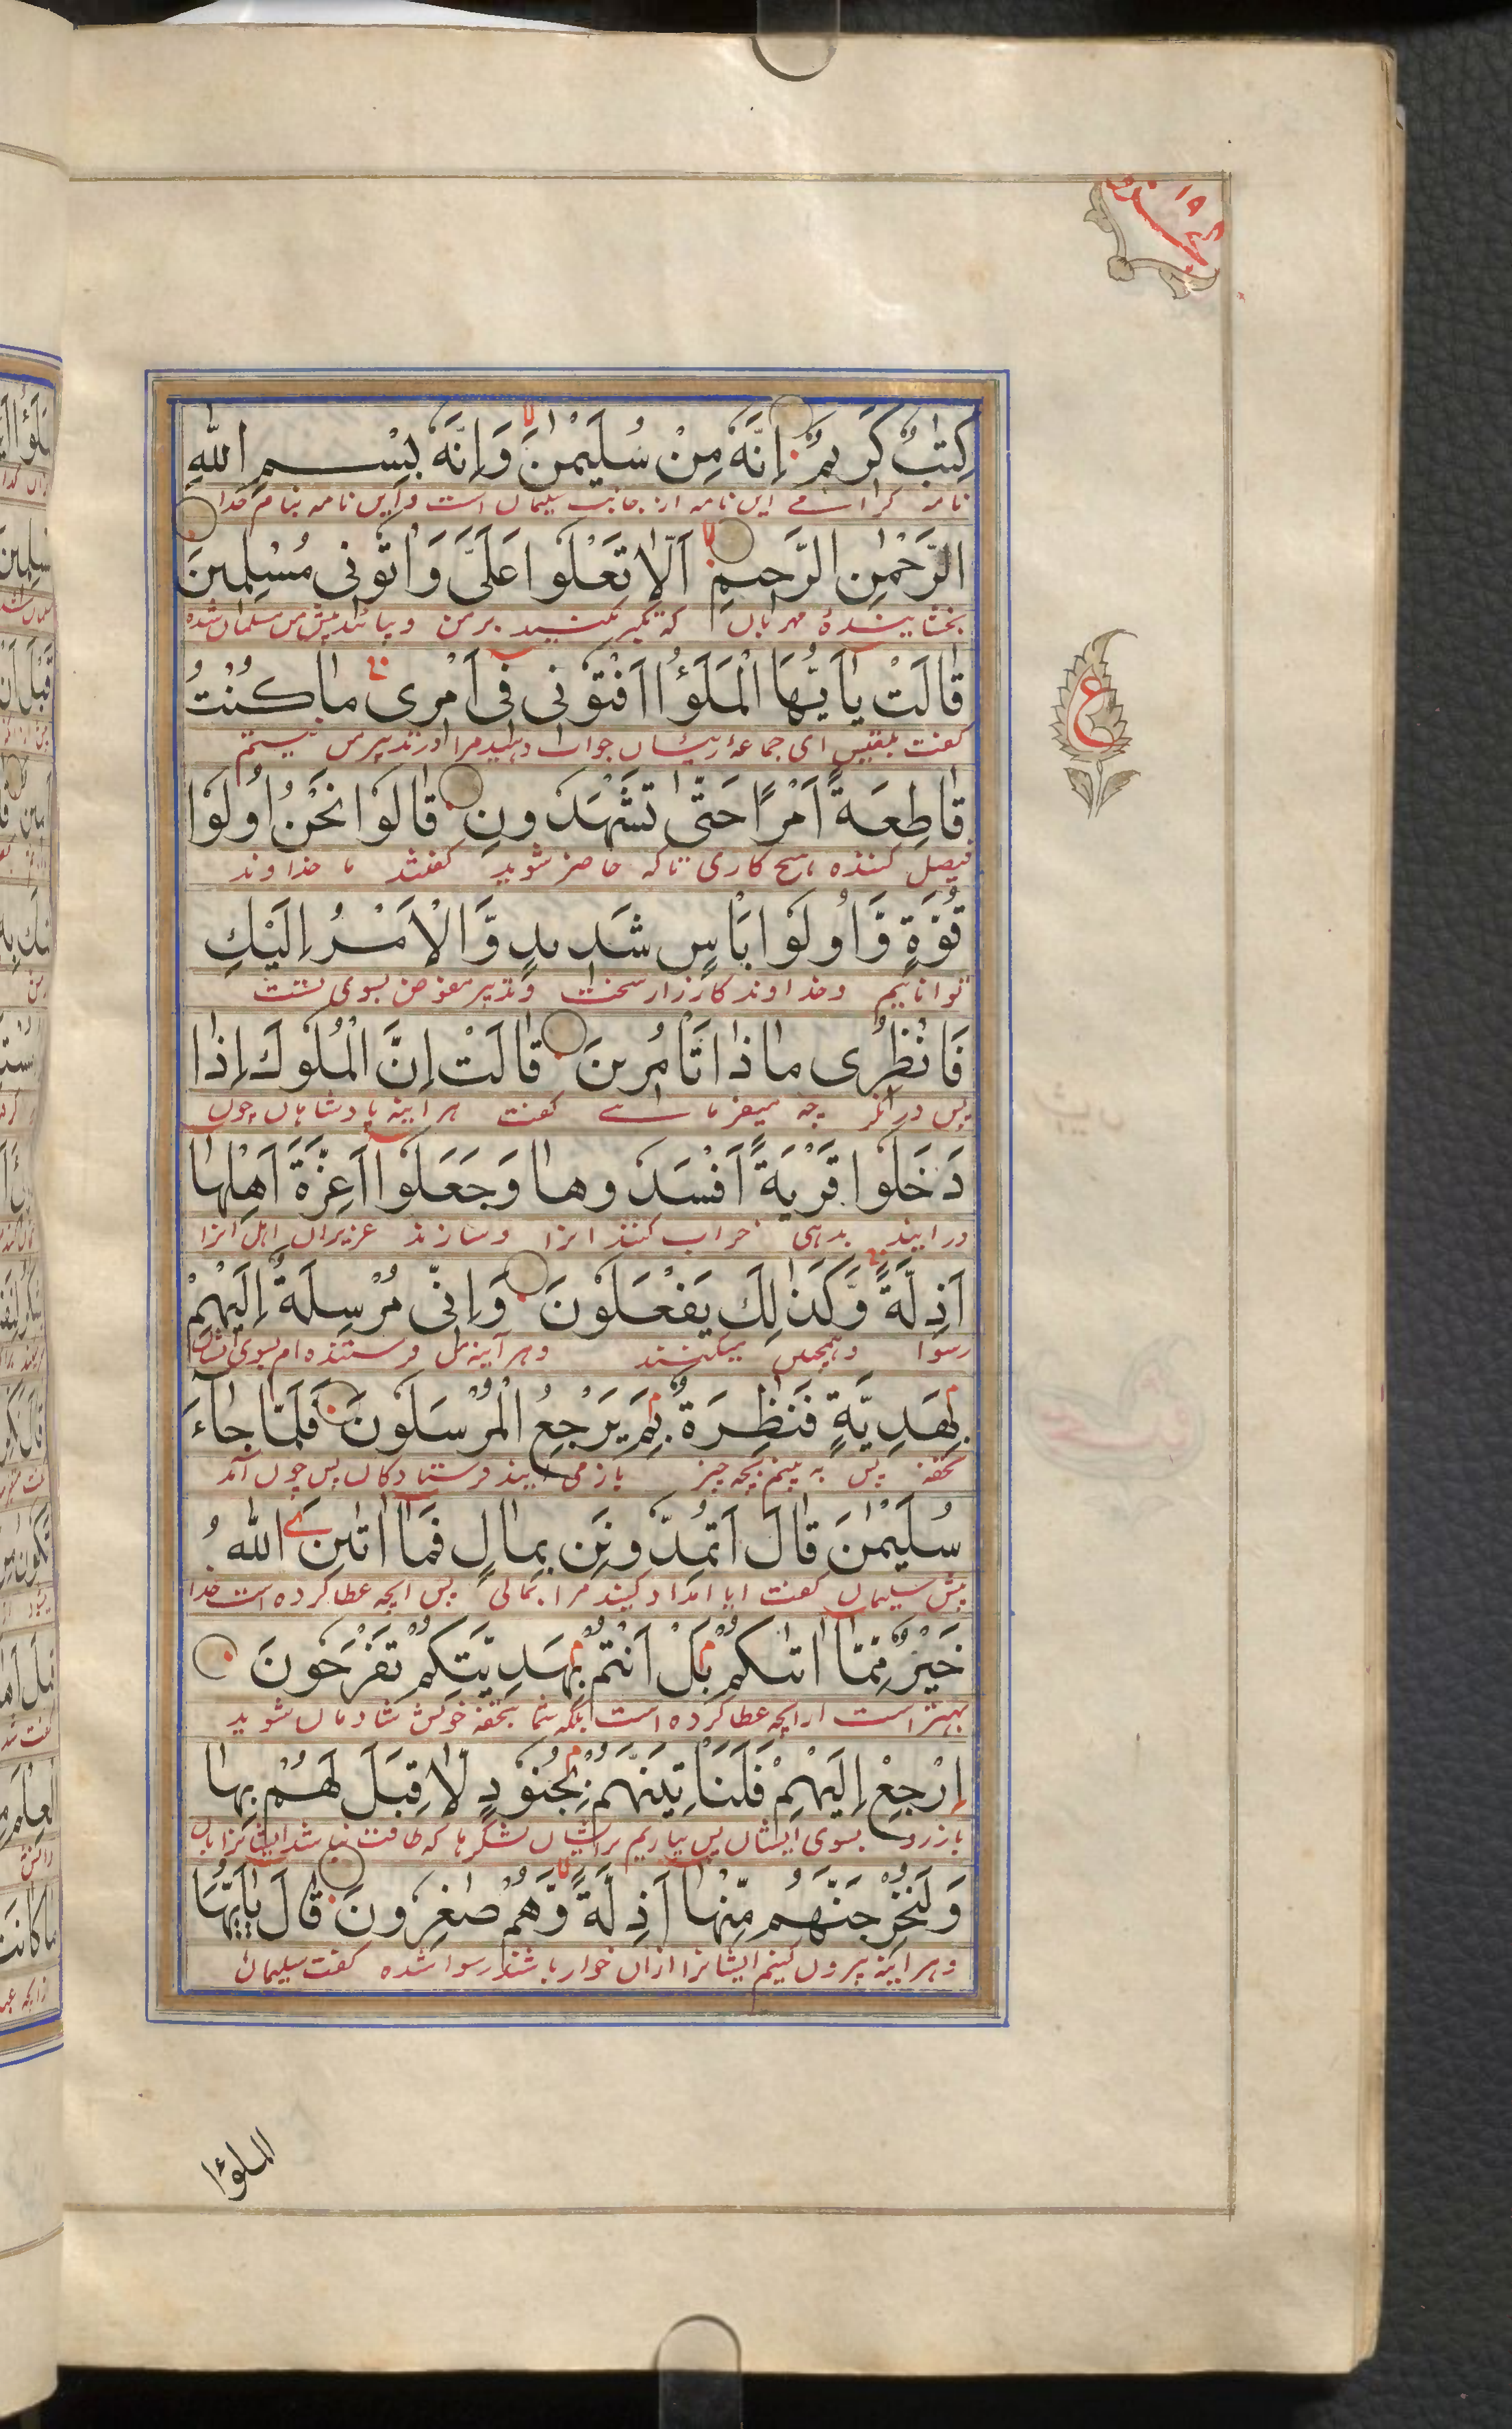 كِتٰبٌ كَرِيمٌ اِنَّهٗ مِنْ سُلَيْمٰنَ وَاِنَّهٗ بِسْمِ اللّٰهِ
نامه گرامے این نامه از جانب سلیمان است و این نامه بنام خدا
الرَّحْمٰنِ الرَّحِيمِ اَلَّا تَعْلُوا عَلَىَّ وَاْتُونِى مُسْلِمِينَ
بخشاینده مهربان که تکبر نکنید بر من و بیائید پیش من مسلمان شده
قَالَتْ يٰٓاَيُّهَا الْمَلَؤُا اَفْتُونِى فِىٓ اَمْرِى مَا كُنْتُ
گفت بلقیس ای جماعهٔ رئیسان جواب دهید مرا در تدبیر من نیستم
قَاطِعَةً اَمْرًا حَتّٰى تَشْهَدُونِ قَالُوا نَحْنُ اُولُوا
فیصل کننده هیچ کاری تاکه حاضر شوید گفتند ما خداوند
قُوَّةٍ وَّاُولُوا بَاْسٍ شَدِيدٍ وَّالْاَمْرُ اِلَيْكِ
تواناییم و خداوند کارزار سخت و تدبیر مفوض بسوی تست
فَانْظُرِى مَاذَا تَاْمُرِينَ قَالَتْ اِنَّ الْمُلُوكَ اِذَا
پس در نگر چه میفرمائے گفت هرآینه پادشاهان چون
دَخَلُوا قَرْيَةً اَفْسَدُوهَا وَجَعَلُوٓا اَعِزَّةَ اَهْلِهَا
درایند بدهی خراب کنند انرا و سازند عزیزان اهل انرا
اَذِلَّةً وَّكَذٰلِكَ يَفْعَلُونَ وَاِنِّى مُرْسِلَةٌ اِلَيْهِمْ
رسوا و همچنین میکنند و هرآینه من فرستنده ام بسوی ایشان
بِهَدِيَّةٍ فَنٰظِرَةٌ بِمَ يَرْجِعُ الْمُرْسَلُونَ فَلَمَّا جَآءَ
تحفه پس به بینم بچه چیز باز می آیند فرستادگان پس چون آمد
سُلَيْمٰنَ قَالَ اَتُمِدُّونَنِ بِمَالٍ فَمَآ اٰتٰىنِۦَ اللّٰهُ
پیش سلیمان گفت ایا امداد کنید مرا بمالی پس انچه عطا کرده است خدا
خَيْرٌ مِّمَّآ اٰتٰىكُمْ بَلْ اَنْتُمْ بِهَدِيَّتِكُمْ تَفْرَحُونَ
بهتر است از انچه عطا کرده است بلکه شما بتحفه خویش شادمان شوید
اِرْجِعْ اِلَيْهِمْ فَلَنَاْتِيَنَّهُمْ بِجُنُودٍ لَّا قِبَلَ لَهُمْ بِهَا
باز رو بسوی ایشان پس بیاریم بر ایشان لشکرها که طاقت نباشد ایشانرا بآن
وَلَنُخْرِجَنَّهُمْ مِّنْهَآ اَذِلَّةً وَّهُمْ صٰغِرُونَ قَالَ يٰٓاَيُّهَا
و هرآینه بیرون کنیم ایشانرا ازان خوار باشند رسوا شده گفت سلیمان
الملؤا
۱۹
ع